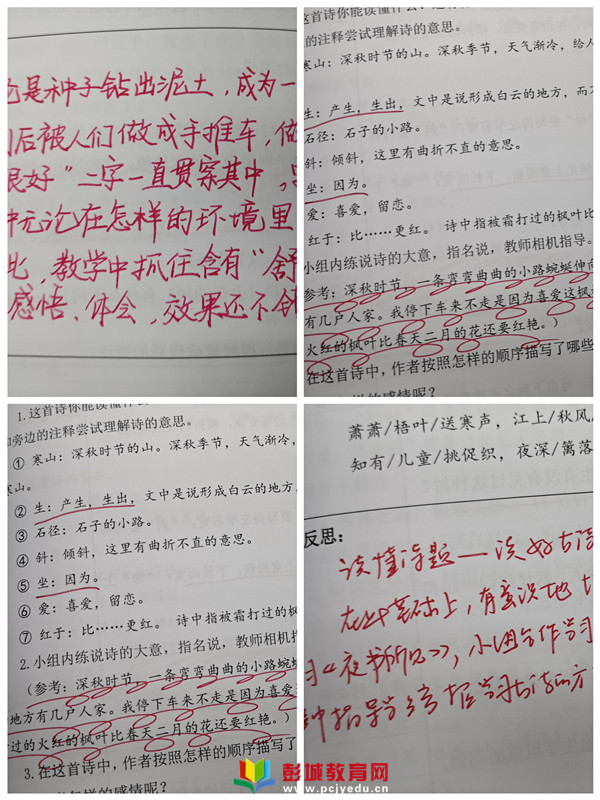 是种子钻出泥土，成为一
后被人们做成手推车，做
很好"二字一直贯穿其中，
无论在怎样的环境里
此，教学中抓住含有"舒
感悟、体会，效果还不错
这首诗你能读懂什么
的注释尝试理解诗的意思。
寒山：深秋时节的山。深秋季节，天气渐冷，给人
生：产生，生出，文中是说形成白云的地方，而
石径：石子的小路。
斜：倾斜，这里有曲折不直的意思。
坐：因为。
爱：喜爱，留恋。
红于：比……更红。 诗中指被霜打过的枫叶比
小组内练说诗的大意，指名说，教师相机指导。
参考：深秋时节，一条弯弯曲曲的小路蜿蜒伸向
有几户人家。我停下车来不走是因为喜爱这枫
火红的枫叶比春天二月的花还要红艳。）
在这首诗中，作者按照怎样的顺序描写了哪些
的感情呢？
1.这首诗你能读懂什么
旁边的注释尝试理解诗的意思。
① 寒山：深秋时节的山。深秋季节，天气渐冷，
寒山。
② 生：产生，生出，文中是说形成白云的地方，
③ 石径：石子的小路。
④ 斜：倾斜，这里有曲折不直的意思。
⑤ 坐：因为。
⑥ 爱：喜爱，留恋。
⑦ 红于：比……更红。 诗中指被霜打过的枫
2.小组内练说诗的大意，指名说，教师相机指
（参考：深秋时节，一条弯弯曲曲的小路蜿蜒
地方有几户人家。我停下车来不走是因为喜爱
过的火红的枫叶比春天二月的花还要红艳。）
3.在这首诗中，作者按照怎样的顺序描写了
怎样的感情呢？
萧萧/梧叶/送寒声，江上/秋风
知有/儿童/挑促织，夜深/篱落
反思：
读懂诗题——读好古诗
在此基础上，有意识地
习《夜书所见》，小组合作学习
中指导学生掌握学习古诗的方
彭城教育网
www.pcjyedu.cn